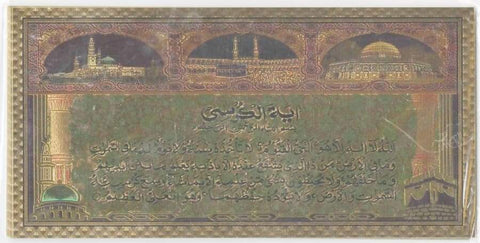 اية الكرسي
بسم الله الرحمن الرحيم
الله لا اله الا هو الحي القيوم لا تأخذه سنة ولا نوم له ما في السموات
وما في الارض من ذا الذي يشفع عنده الا باذنه يعلم ما بين ايديهم
وما خلفهم ولا يحيطون بشيء من علمه الا بما شاء وسع كرسيه
السموات والارض ولا يؤده حفظهما وهو العلي العظيم